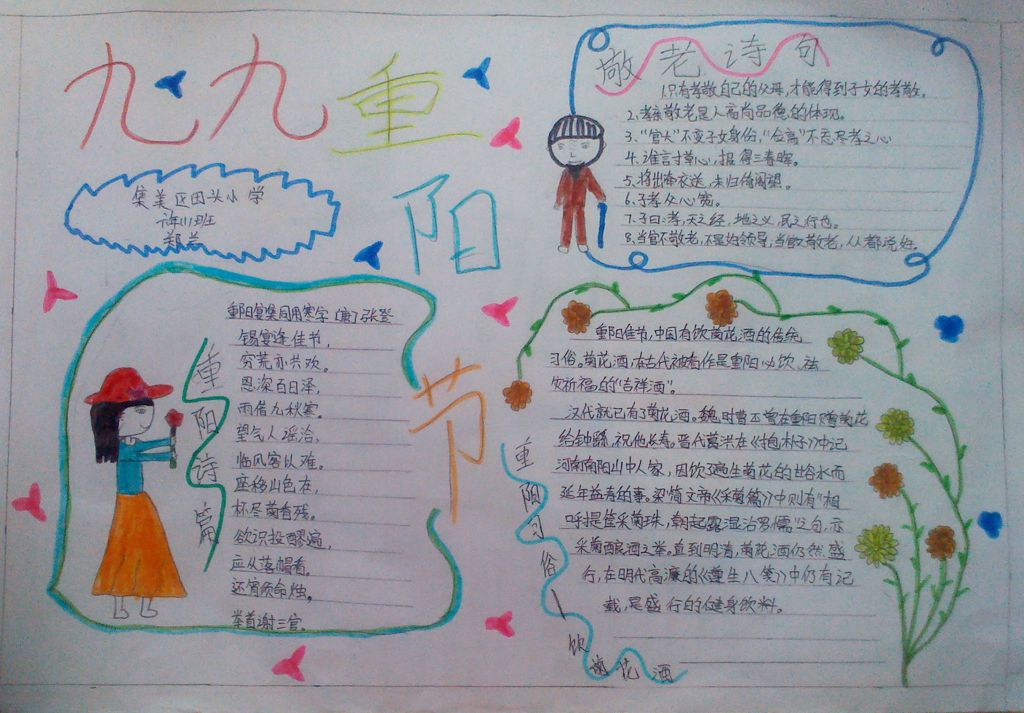 九九重阳节
集美区田头小学
敬老诗句
1.只有孝敬自己的父母,才能得到子女的孝敬。
2.孝亲敬老是人高尚品德的体现。
3."官大"不变子女身份,"位高"不忘尽孝之心
4.谁言寸草心,报得三春晖。
5.将出牵衣送,未归倚阁望。
6.子孝父心宽。
7.子曰:孝,天之经,地之义,民之行也。
8.当官不敬老,不是好领导,当官敬老,人都说好。
重阳诗篇
重阳宴集同用寒字 (唐)张登
锡宴逢佳节,
穷荒亦共欢。
恩深百日泽,
雨借九秋寒。
望气人谣洽,
临风客以难。
座移山色在,
杯尽菊香残。
欲识投醪遍,
应从落帽看。
还宵须命烛,
举首谢三官。
重阳习俗—饮菊花酒
重阳佳节,中国有饮菊花酒的传统
习俗。菊花酒,在古代被看作是重阳必饮、祛
灾祈福的"吉祥酒"。
汉代就已有了菊花酒。魏时曹丕曾在重阳赠菊花
给钟繇,祝他长寿。晋代葛洪在《抱朴子》中记
河南南阳山中人家,因饮了遍生菊花的甘谷水而
延年益寿的事。梁简文帝《采菊篇》中则有"相
呼提筐采菊珠,朝起露湿沾罗儒"之句,亦
采菊酿酒之举。直到明清,菊花酒仍然盛
行,在明代高濂的《遵生八笺》中仍有记
载,是盛行的健身饮料。